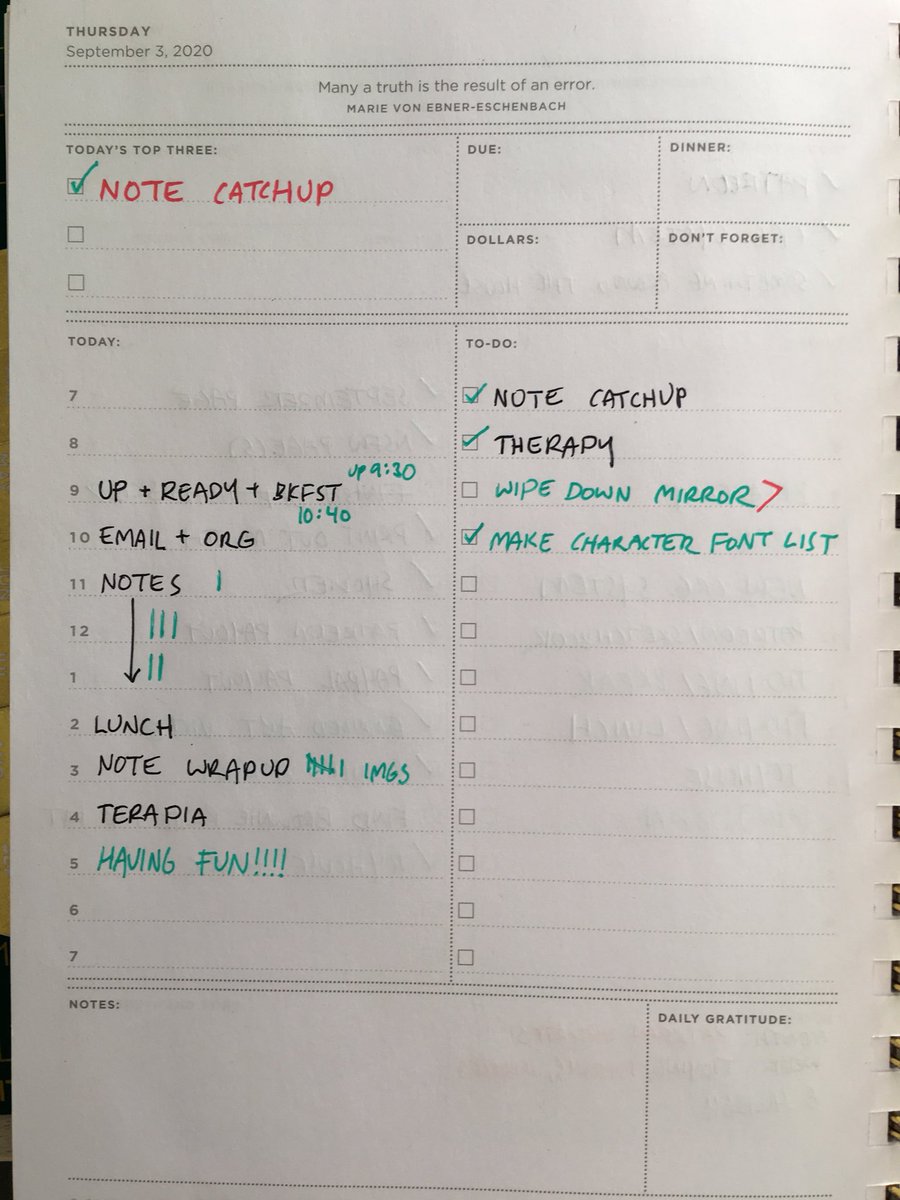 THURSDAY
September 3, 2020
Many a truth is the result of an error.
MARIE VON EBNER-ESCHENBACH
TODAY'S TOP THREE:
NOTE CATCHUP
DUE:
DINNER:
DOLLARS:
DON'T FORGET:
TODAY:
7
8
up 9:30
9 UP + READY + BKFST
10:40
10 EMAIL + ORG
11 NOTES |
12 |||
1 ||
2 LUNCH
3 NOTE WRAPUP IMGS
4 TERAPIA
5 HAVING FUN!!!!
6
7
TO-DO:
NOTE CATCHUP
THERAPY
WIPE DOWN MIRROR >
MAKE CHARACTER FONT LIST
NOTES:
DAILY GRATITUDE: